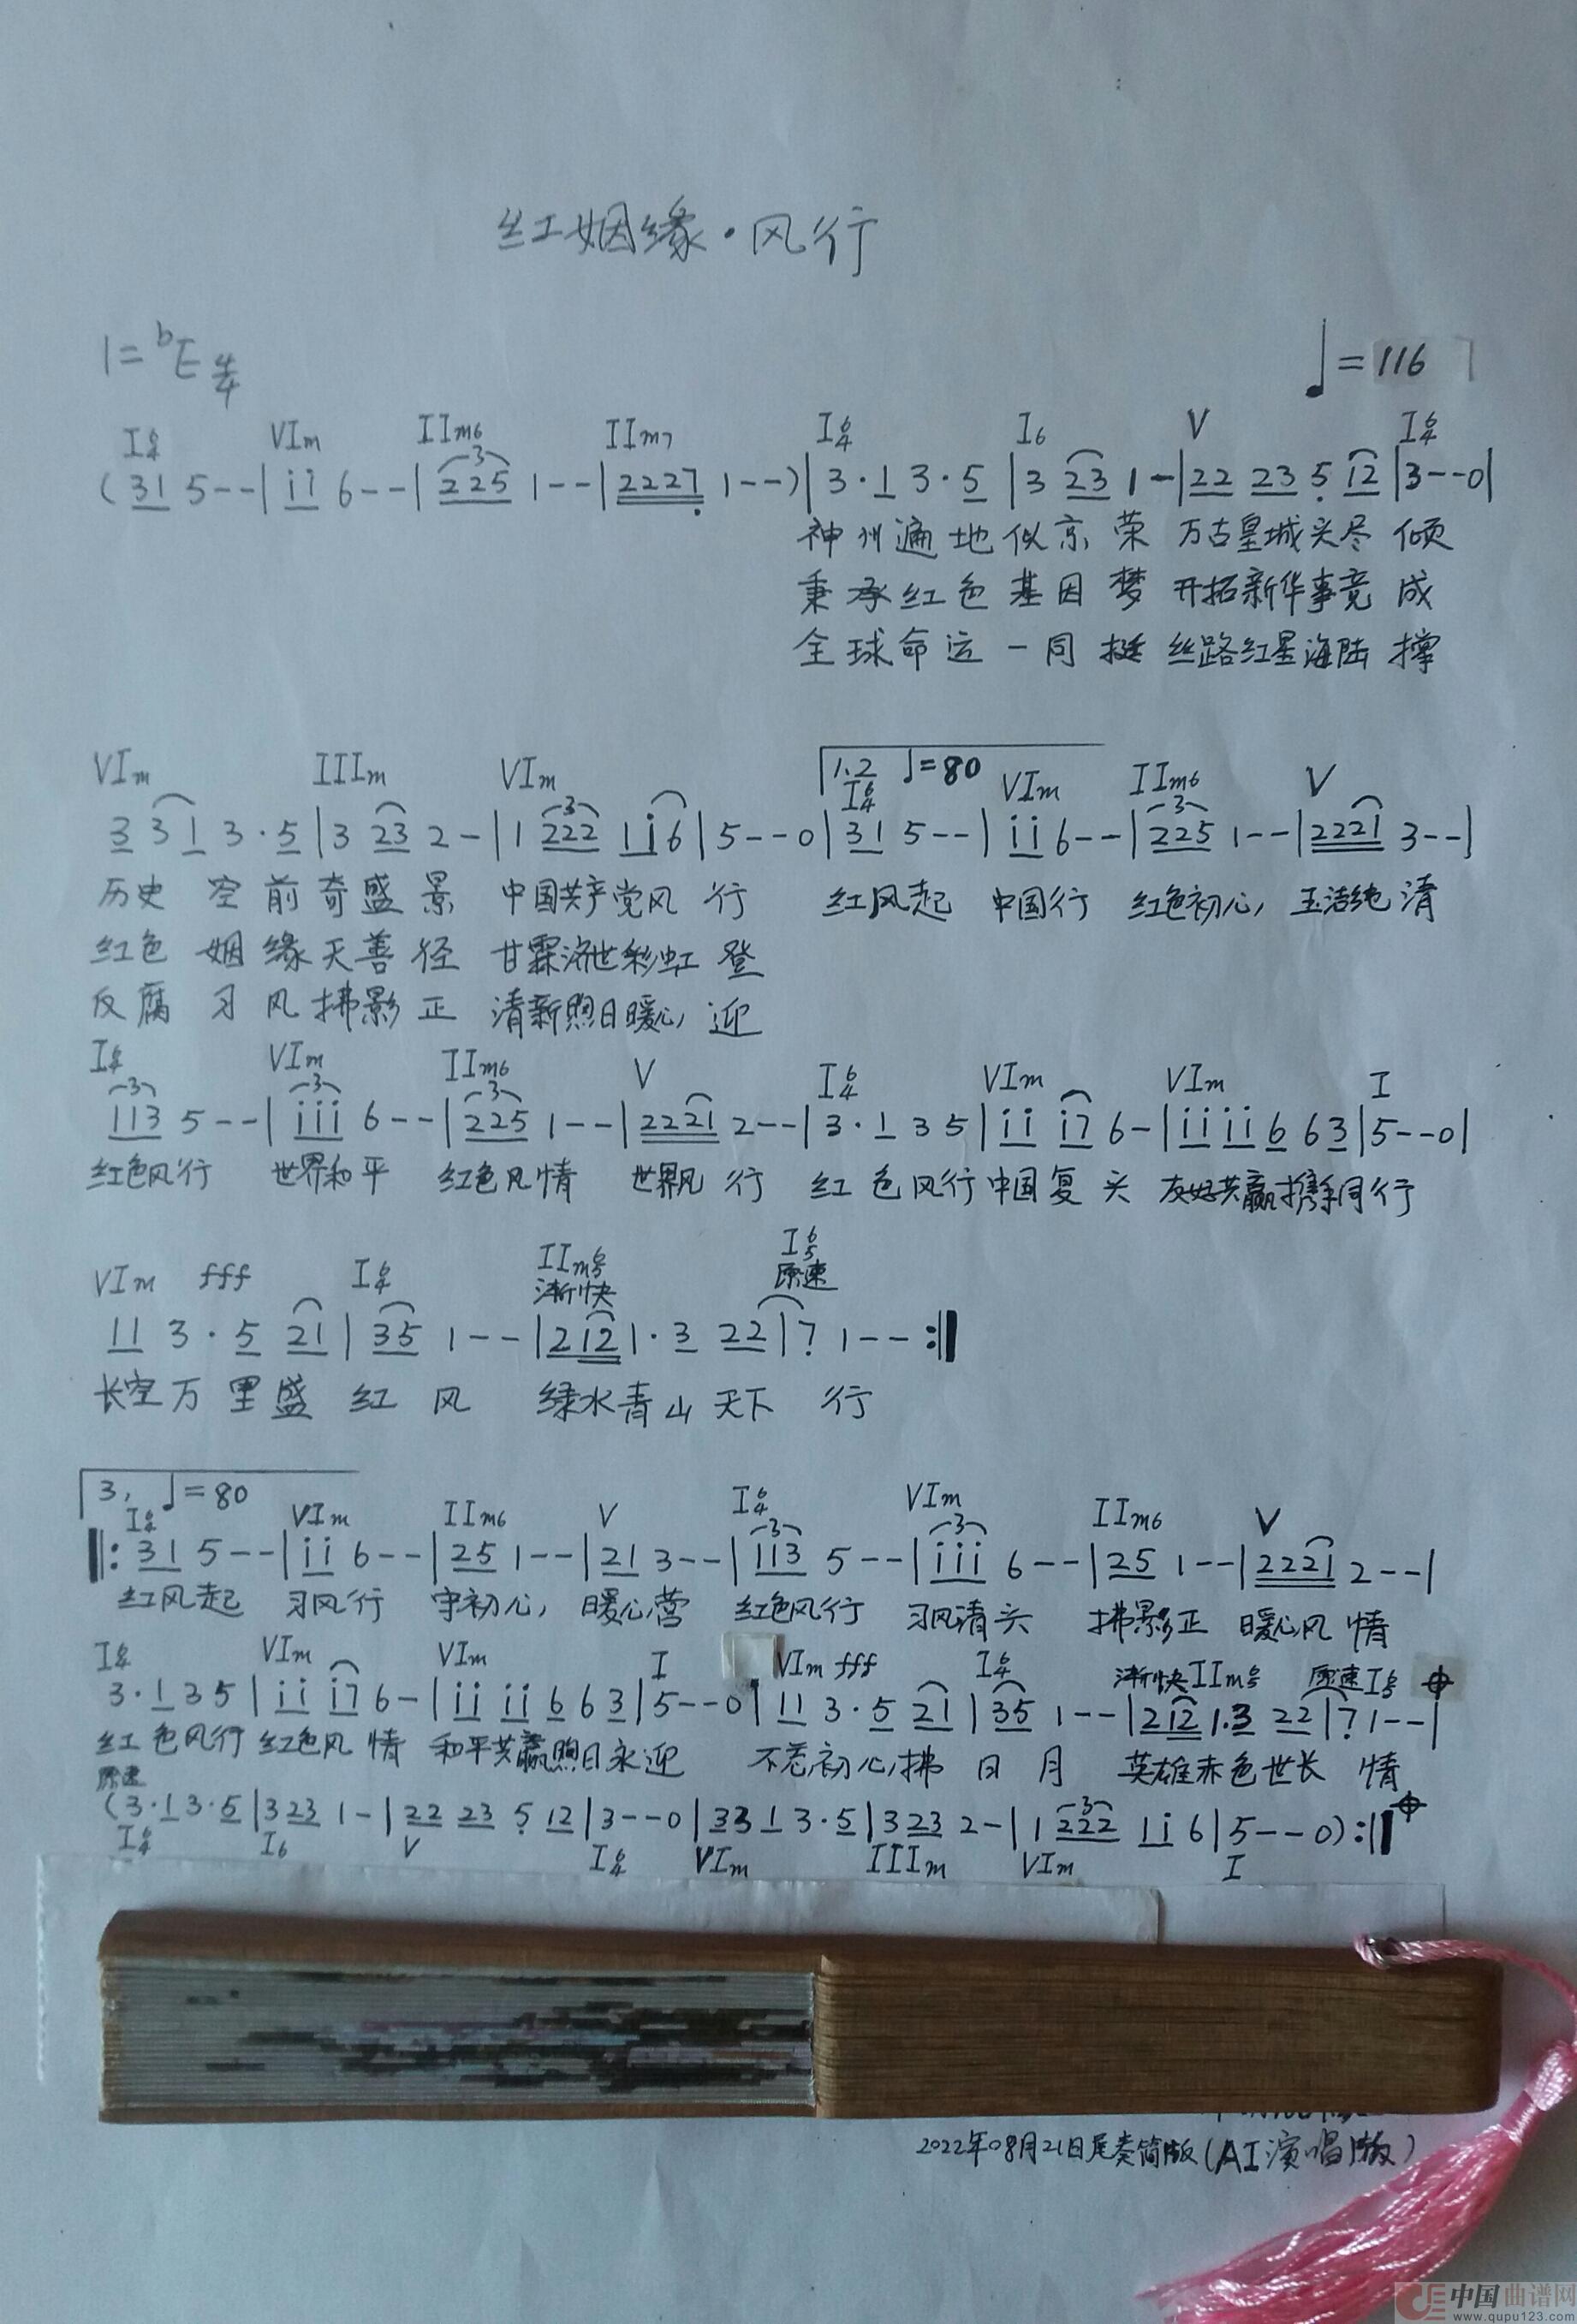 红姻缘·风行
1=bE 4/4
♩=116
I6/4 VIm IIm6 IIm7 I6/4 I6 V I6/4
(31 5--|i7 6--|225 1--|2227 1--)|3·1 3·5|3 23 1-|22 23 5 12|3--0|
神州遍地似京荣 万古皇城头尽倾
秉承红色基因梦 开拓新华事竟成
全球命运一同挺 丝路红星海陆撑
VIm IIIm VIm 1.2 ♩=80 I6/4 VIm IIm6 V
3 3 1 3·5|3 23 2-|1 222 1i6|5--0|31 5--|ii 6--|225 1--|2221 3--|
历史空前奇盛景 中国共产党风行 红风起 中国行 红色初心 玉洁纯清
红色姻缘天善径 甘霖 世彩虹登
反腐习风拂影正 清新煦日暖心迎
I6/4 VIm IIm6 V I6/4 VIm VIm I
113 5--|iii 6--|225 1--|2221 2--|3·1 35|ii i7 6-|ii ii 6 63|5--0|
红色风行 世界和平 红色风情 世界风行 红色风行中国复兴 友好共赢携手同行
VIm fff I6/4 IIm6/5 渐快 I6/5 原速
11 3·5 21|35 1--|212 1·3 22|7 1--:‖
长空万里盛红风 绿水青山天下行
3, ♩=80
I6/4 VIm IIm6 V I6/4 VIm IIm6 V
‖:31 5--|ii 6--|25 1--|21 3--|113 5--|iii 6--|25 1--|2221 2--|
红风起 习风行 守初心 暖心营 红色风行 习风清 拂影正 暖心风情
I6/4 VIm VIm I VIm fff I6/4 渐快 IIm6/5 原速 I6/5
3·1 35|ii i7 6-|ii ii 6 63|5--0|11 3·5 21|35 1--|212 1.3 22|7 1--|
红色风行 红色风情 和平共赢煦日永迎 不忘初心拂日月 英雄赤色世长情
原速
(3·1 3·5|3 23 1-|22 23 5 12|3--0|33 1 3·5|3 23 2-|1 222 1i 6|5--0):‖
I6/4 I6 V I6/4 VIm IIIm VIm I
2022年08月21日尾奏简版(AI演唱版)
中国曲谱网
www.qupu123.com